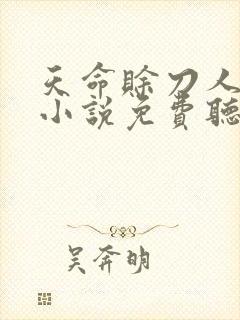 天命賒刀人
小說免費聽
吴奔明